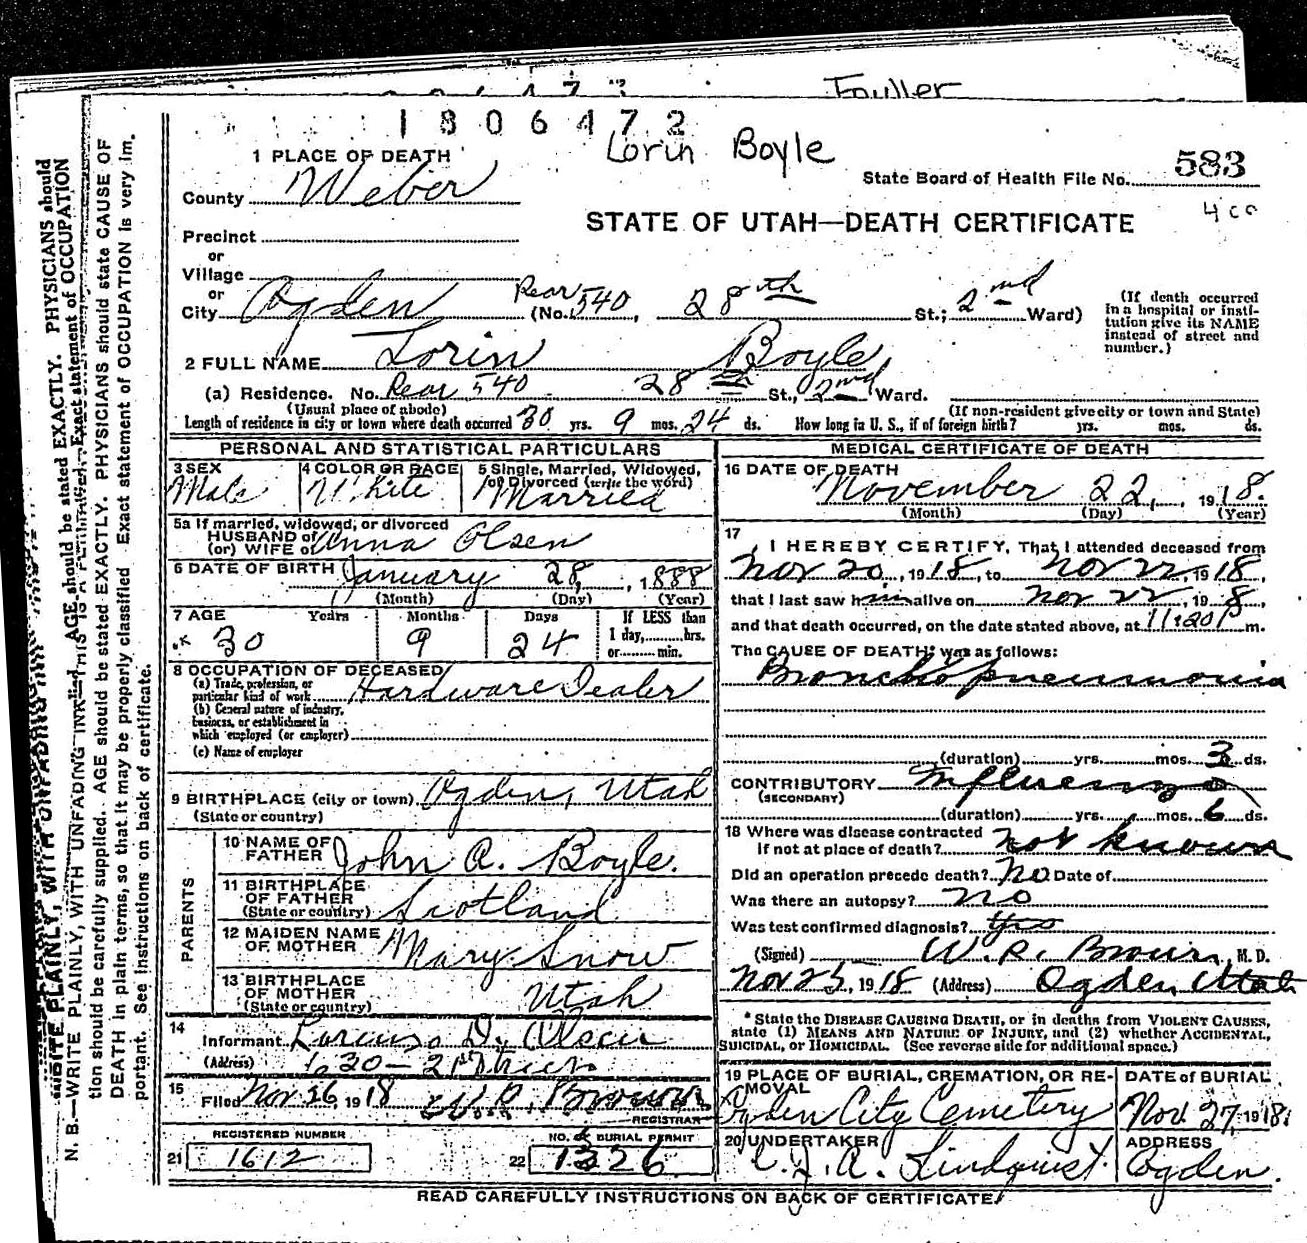 Fouller
1806472
Lorin Boyle
583
State Board of Health File No.
4 cc
1 PLACE OF DEATH
County Weber
STATE OF UTAH—DEATH CERTIFICATE
Precinct
or
Village
or
City Ogden (No. Rear 540, 28th St.; 2nd Ward)
(If death occurred in a hospital or institution give its NAME instead of street and number.)
2 FULL NAME Lorin Boyle
(a) Residence. No. Rear 540 28th St., 2nd Ward.
(Usual place of abode) (If non-resident give city or town and State)
Length of residence in city or town where death occurred 30 yrs. 9 mos. 24 ds. How long in U. S., if of foreign birth? yrs. mos. ds.
PERSONAL AND STATISTICAL PARTICULARS
3 SEX Male
4 COLOR OR RACE White
5 Single, Married, Widowed, or Divorced (write the word) Married
5a If married, widowed, or divorced
HUSBAND of
(or) WIFE of Anna Olsen
6 DATE OF BIRTH January 28, 1888
(Month) (Day) (Year)
7 AGE Years Months Days If LESS than
30 9 24 1 day, hrs.
or min.
8 OCCUPATION OF DECEASED
(a) Trade, profession, or
particular kind of work Hardware Dealer
(b) General nature of industry,
business, or establishment in
which employed (or employer)
(c) Name of employer
9 BIRTHPLACE (city or town) Ogden, Utah
(State or country)
PARENTS
10 NAME OF
FATHER John A. Boyle.
11 BIRTHPLACE
OF FATHER
(State or country) Scotland
12 MAIDEN NAME
OF MOTHER Mary Snow
13 BIRTHPLACE
OF MOTHER
(State or country) Utah
14
Informant D. Olsen
(Address) 630 — 21st Street
15
Filed Nov. 26, 1918 W. R. Brown
REGISTRAR
REGISTERED NUMBER
21 1612
NO. of BURIAL PERMIT
22 1326
MEDICAL CERTIFICATE OF DEATH
16 DATE OF DEATH
November 22, 1918.
(Month) (Day) (Year)
17
I HEREBY CERTIFY, That I attended deceased from
Nov 20, 1918, to Nov 22, 1918,
that I last saw him alive on Nov 22, 1918,
and that death occurred, on the date stated above, at 11:20 P m.
The CAUSE OF DEATH* was as follows:
Broncho pneumonia
(duration) yrs. mos. 3 ds.
CONTRIBUTORY Influenza
(SECONDARY)
(duration) yrs. mos. 6 ds.
18 Where was disease contracted
If not at place of death? not known
Did an operation precede death? No Date of
Was there an autopsy? No
Was test confirmed diagnosis? yes
(Signed) W. R. Brown, M. D.
Nov 25, 1918 (Address) Ogden Utah
* State the DISEASE CAUSING DEATH, or in deaths from VIOLENT CAUSES,
state (1) MEANS AND NATURE OF INJURY, and (2) whether ACCIDENTAL,
SUICIDAL, or HOMICIDAL. (See reverse side for additional space.)
19 PLACE OF BURIAL, CREMATION, OR REMOVAL
Ogden City Cemetery
DATE of BURIAL
Nov. 27, 1918.
20 UNDERTAKER
A. Lindquist.
ADDRESS
Ogden.
READ CAREFULLY INSTRUCTIONS ON BACK OF CERTIFICATE
N. B.—WRITE PLAINLY, WITH UNFADING INK AGE should be stated EXACTLY. PHYSICIANS should
tion should be carefully supplied. AGE should be stated EXACTLY. PHYSICIANS should state CAUSE OF
DEATH in plain terms, so that it may be properly classified Exact statement of OCCUPATION is very im-
portant. See instructions on back of certificate.